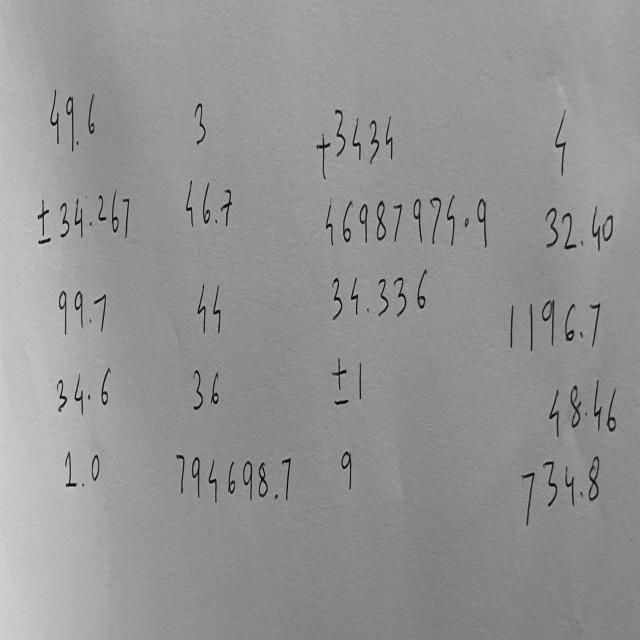 49.6 3 +3434 4
±34.267 46.7 46987974.9 32.40
99.7 44 34.336 1196.7
34.6 36 ±1 48.46
1.0 794698.7 9 734.8